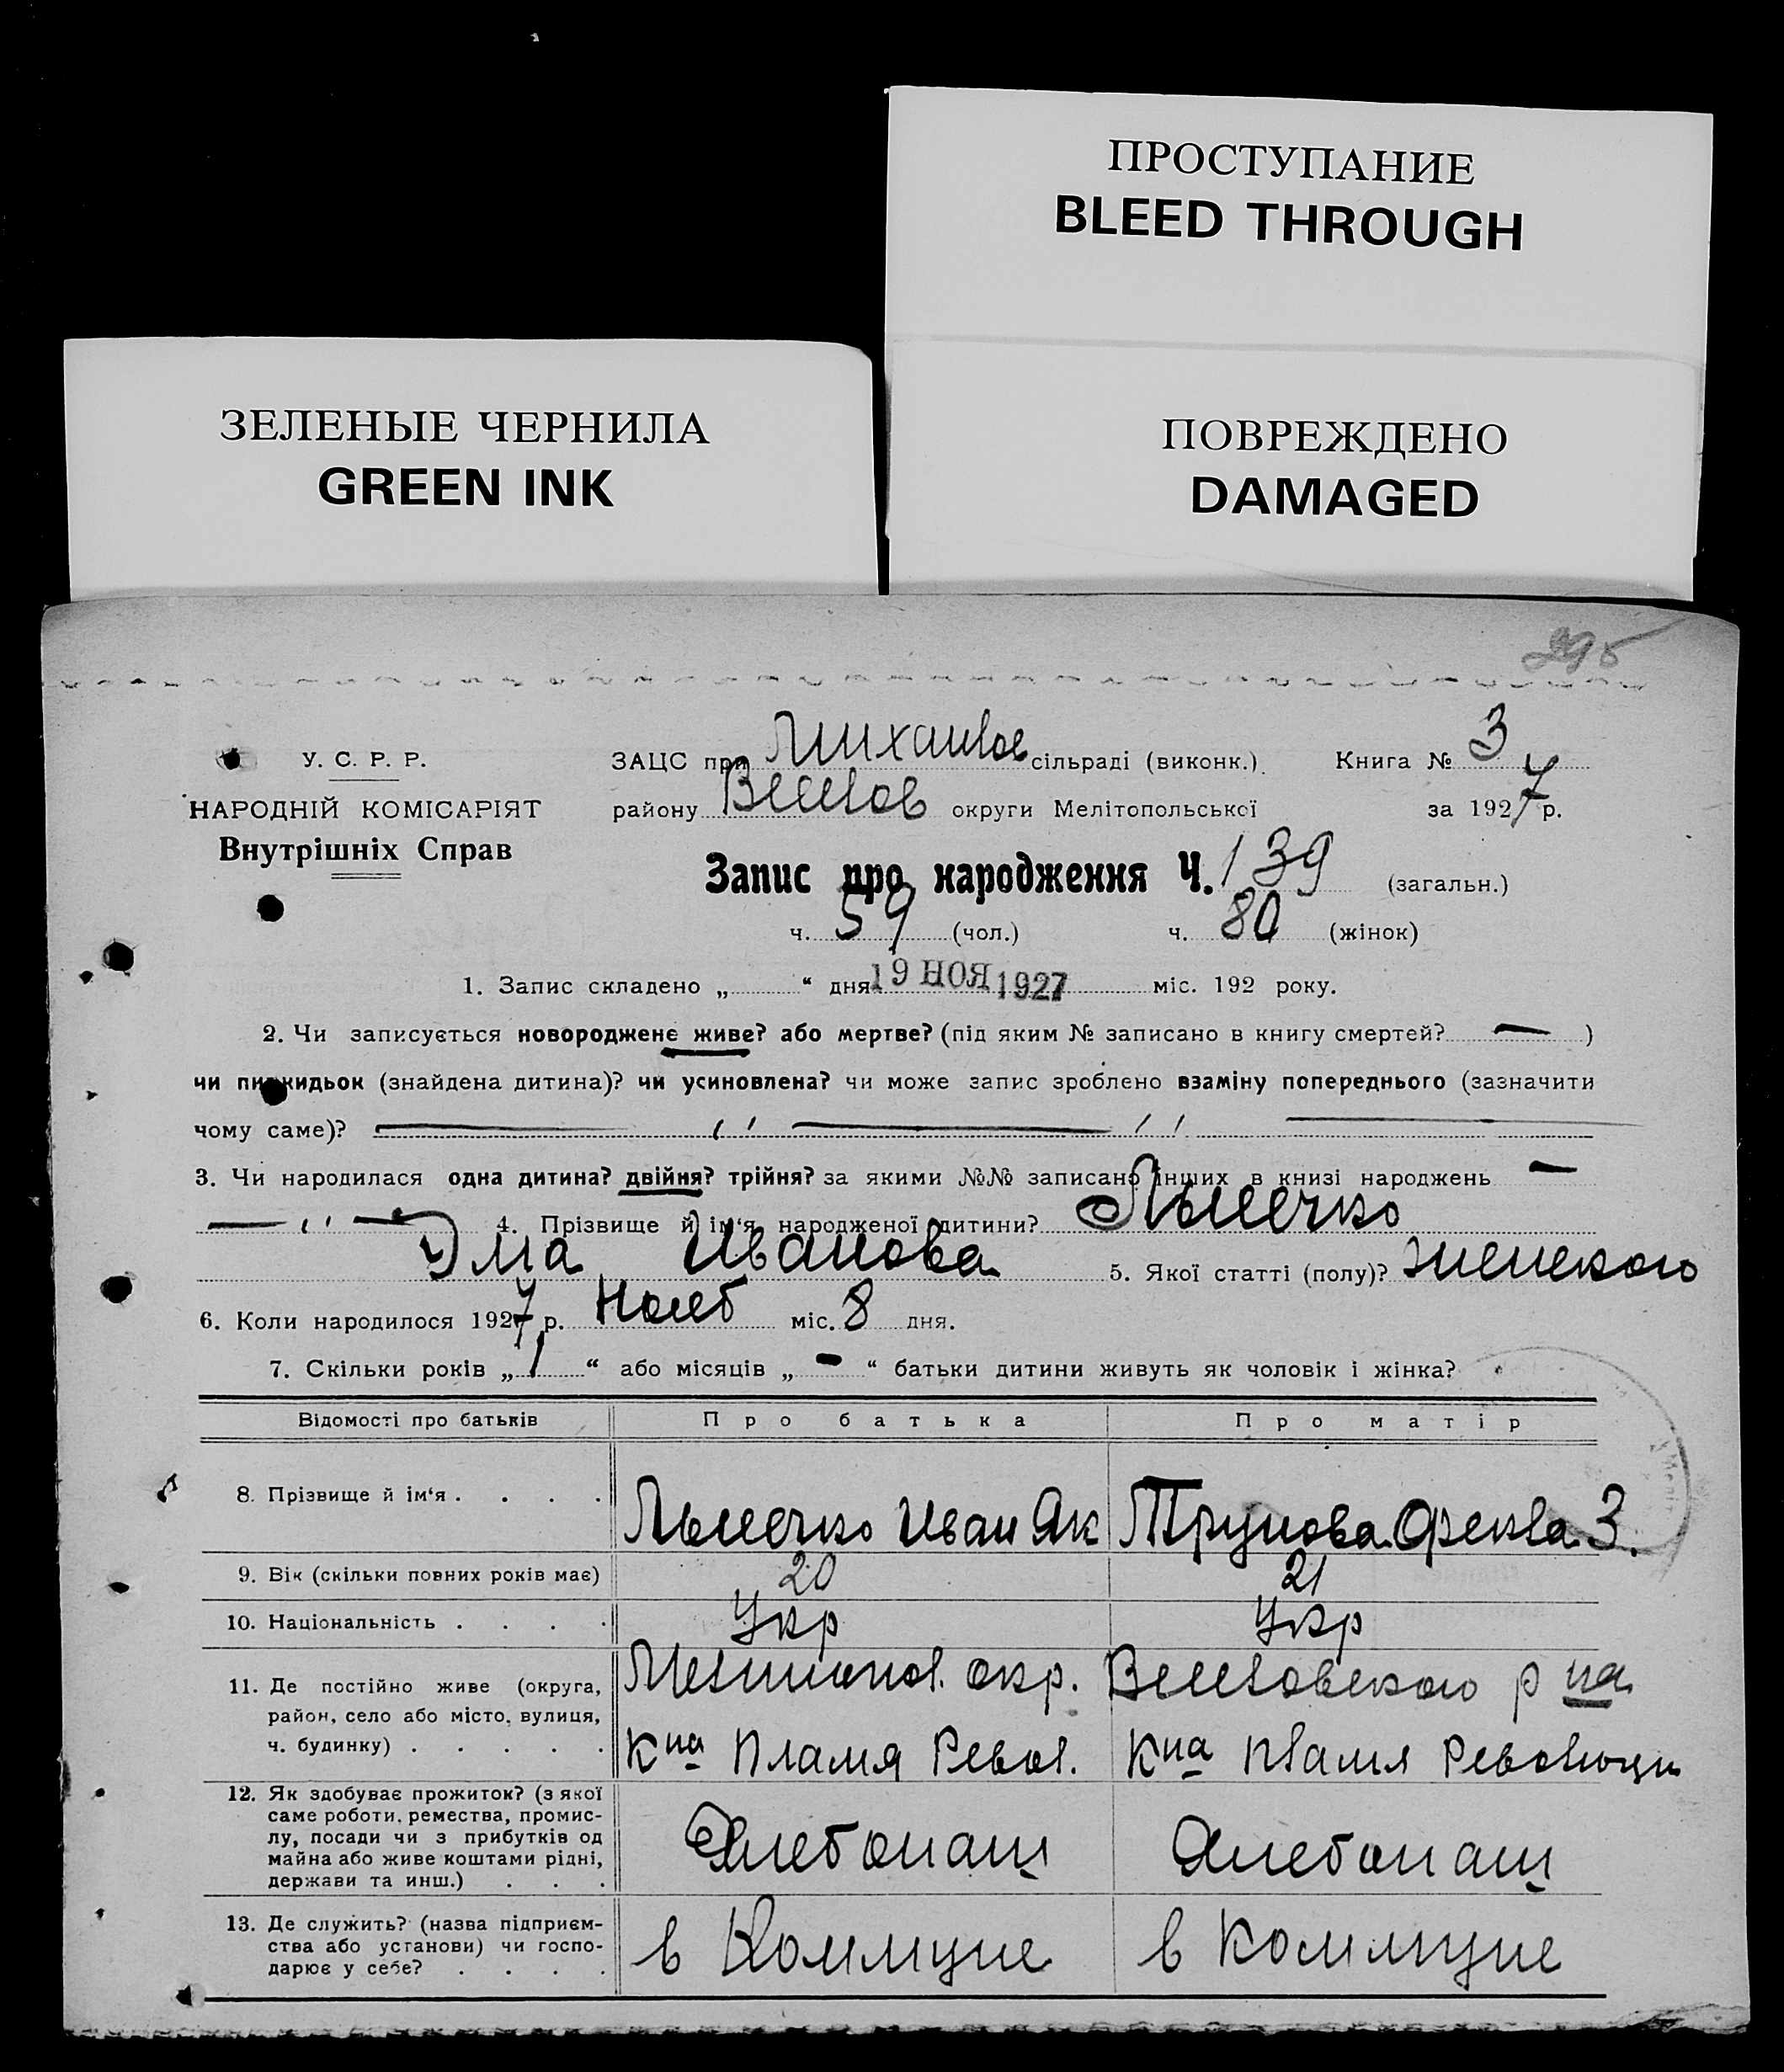 ПРОСТУПАНИЕ
BLEED THROUGH
ЗЕЛЕНЫЕ ЧЕРНИЛА
GREEN INK
ПОВРЕЖДЕНО
DAMAGED
У. С. Р. Р.
НАРОДНІЙ КОМІСАРІЯТ
Внутрішніх Справ
ЗАЦС при Михайлов сільраді (виконк.). Книга № 3
району Веселов округи Мелітопольської за 1927 р.
Запис про народження Ч. 139 (загальн.)
ч. 59 (чол.) ч. 80 (жінок)
1. Запис складено „ “ дня 19 НОЯ 1927 міс. 192 року.
2. Чи записується новороджене живе? або мертве? (під яким № записано в книгу смертей? — )
чи пидкидьок (знайдена дитина)? чи усиновлена? чи може запис зроблено взаміну попереднього (зазначити
чому саме)? — " — "
3. Чи народилася одна дитина? двійня? трійня? за якими №№ записано інших в книзі народжень —
— " — 4. Прізвище й ім‘я народженої дитини? Лысечко
Эма Иванова 5. Якої статті (полу)? женского
6. Коли народилося 1927 р. Нояб міс. 8 дня.
7. Скільки років „ 1 “ або місяців „ - “ батьки дитини живуть як чоловік і жінка?
Відомості про батьків Про батька Про матір
8. Прізвище й ім‘я . . . . Лысечко Иван Як Трунова Фекла З.
9. Вік (скільки повних років має) 20 21
10. Національність . . . . Укр Укр
11. Де постійно живе (округа,
район, село або місто, вулиця,
ч. будинку) . . . . .
Мелитопол. окр. Веселовского р на
Кна ПламяРевол. Кна Пламя Революци
12. Як здобуває прожиток? (з якої
саме роботи, ремества, промис-
лу, посади чи з прибутків од
майна або живе коштами рідні,
держави та инш.) . . .
Хлебопаш Хлебопаш
13. Де служить? (назва підприєм-
ства або установи) чи госпо-
дарює у себе? . . . .
в Коммуне в Коммуне